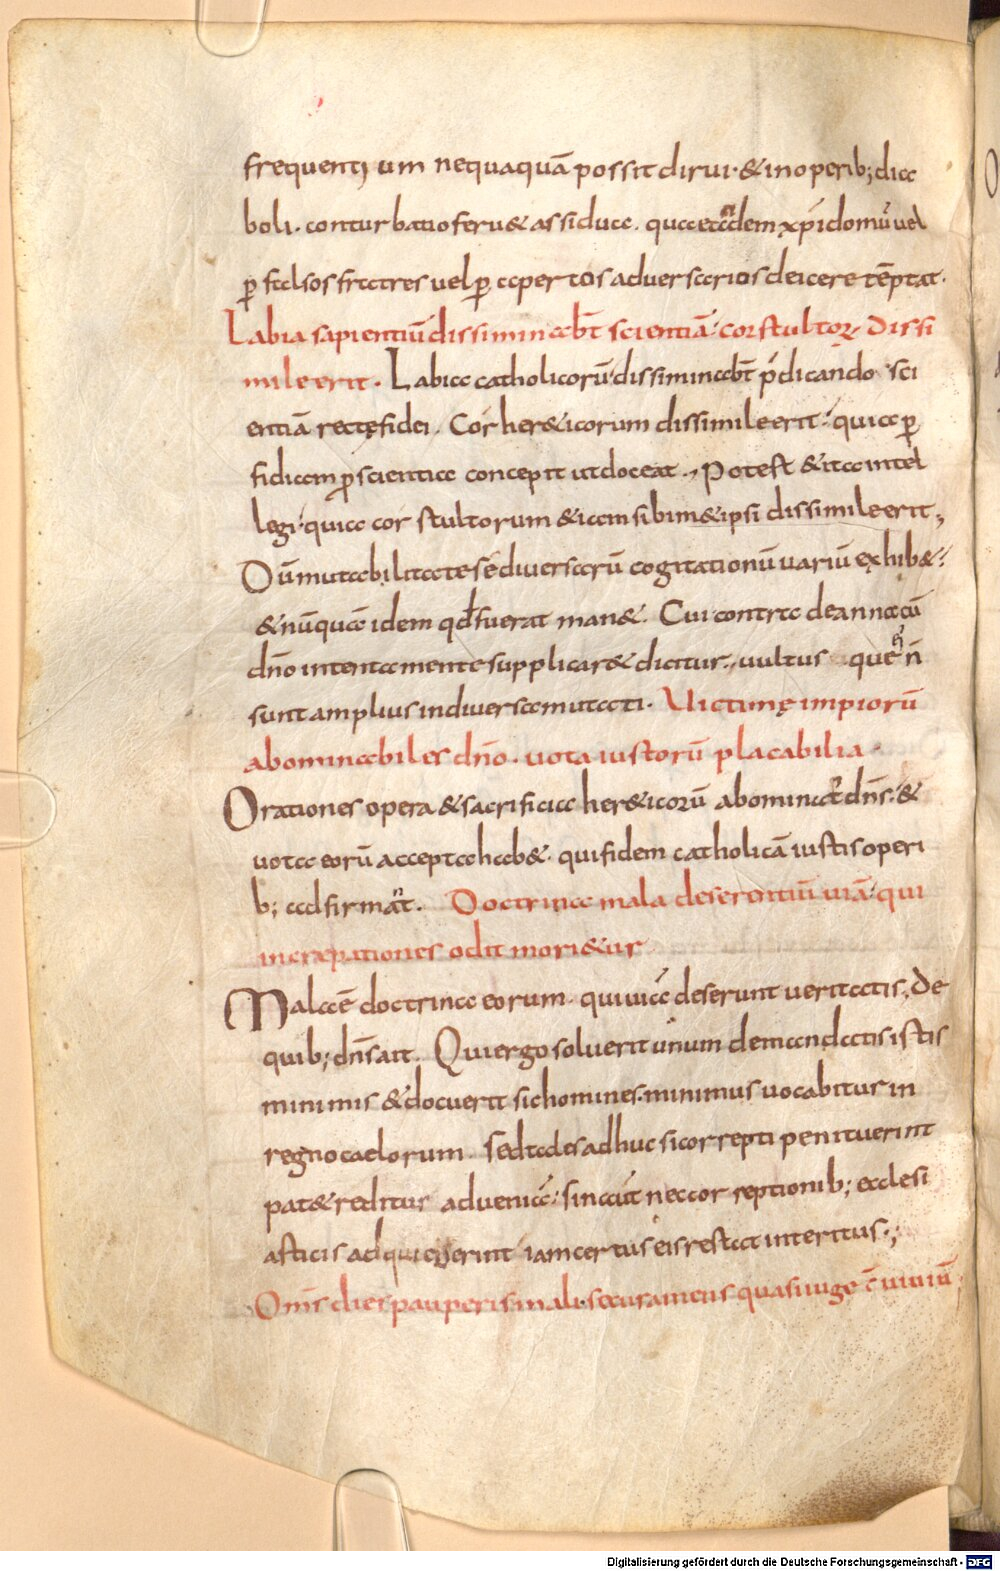 frequentium nequaquā possit dirui · & in operib; dia
boli · conturbatio feru& assidua · quae eādem xp̄i domū uel
ꝑ falsos fratres uel ꝑ apertos aduersarios deicere tēptat ·
Labia sapientiū disseminab̄t scientiā · cor stultoꝝ dissi
mile erit · Labia catholicorū dissiminab̄t p̄dicando sci
entiā rectę fidei · Cor her&icorum dissimile erit · quia ꝑ
fidiam ꝓ scientia concepit ut doceat · Potest & ita intel
legi · quia cor stultorum &iam sibim& ipsi dissimile erit ;
Dū mutabilitate se diuersarū cogitationū variū exhib& ·
& nūquā idem qđ fuerat man& · Cui contra de anna cū
dn̄o intenta mente supplicar& dicitur · uultus que ei n̄
sunt amplius in diuersa mutati · Victimę impiorū
abominabiles dn̄o · uota iustorū placabilia ·
Orationes opera & sacrificia her&icorū abominat dn̄s · &
uota eorū accepta hab& · qui fidem catholicā iustis operi
b; adfirmant · Doctrina mala deserentiū uiā · qui
increpationes odit mori&ur
Mala ē doctrina eorum · qui uiā deserunt ueritatis · De
quib; dn̄s ait · Qui ergo soluerit unum de mandatis istis
minimis & docuerit sic homines · minimus uocabitur in
regno caelorum · Sed tales adhuc si correpti penituerint
pat& reditus ad ueniā · sin aūt nec correptionib; ecclesi
asticis adquieuerint iam certus eis restat interitus · ;
Om̄s dies pauperis mali · secura mens quasi iuge c̄uiuiū
Digitalisierung gefördert durch die Deutsche Forschungsgemeinschaft - DFG